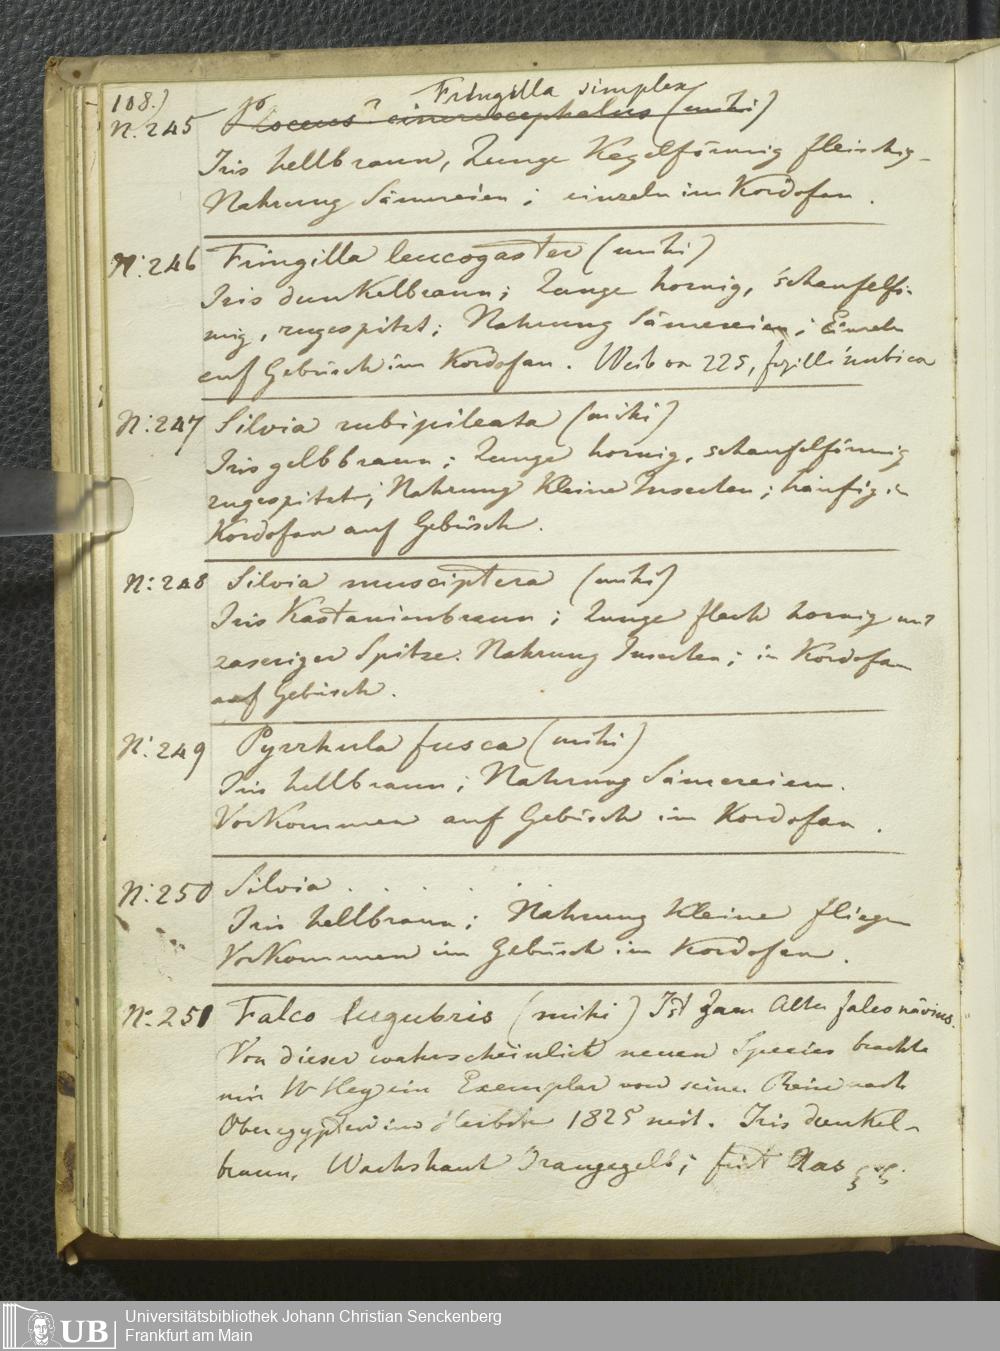 108.)
Fringilla simplex
N. 245 Ploceus? cinereocephalus (mihi)
Iris hellbraun, Zunge Kegelförmig fleischig
Nahrung Sämereien; einzeln im Kordofan.
N: 246 Fringilla leucogaster (mihi)
Iris dunkelbraun; Zunge hornig, schaufelför-
mig, zugespitzt; Nahrung Sämereien; Einzeln
auf Gebüsch im Kordofan. Weib von 225, nubica
N: 247 Silvia rubipileata (mihi)
Iris gelbbraun; Zunge hornig, schaufelförmig
zugespitzt; Nahrung Kleine Insecten; häufig in
Kordofan auf Gebüsch.
N: 248 Silvia musciptera (mihi)
Iris Kastanienbraun; Zunge flach hornig mit
zaseriger Spitze. Nahrung Insecten; in Kordofan
auf Gebüsch.
N: 249 Pyrrhula fusca (mihi)
Iris hellbraun; Nahrung Sämereien.
Vorkommen auf Gebüsch im Kordofan.
N: 250 Silvia . . . . . .
Iris hellbraun; Nahrung Kleine fliegen
Vorkommen im Gebüsch im Kordofan.
N: 251 Falco lugubris (mihi) Ist zum Alten falco nävius.
Von dieser wahrscheinlich neuen Species brachte
mir H Hey ein Exemplar von seiner Reise nach
Oberegypten im Herbste 1825 mit. Iris dunkel-
braun, Wachshaut Orangegelb; frist Aas
UB Universitätsbibliothek Johann Christian Senckenberg
Frankfurt am Main